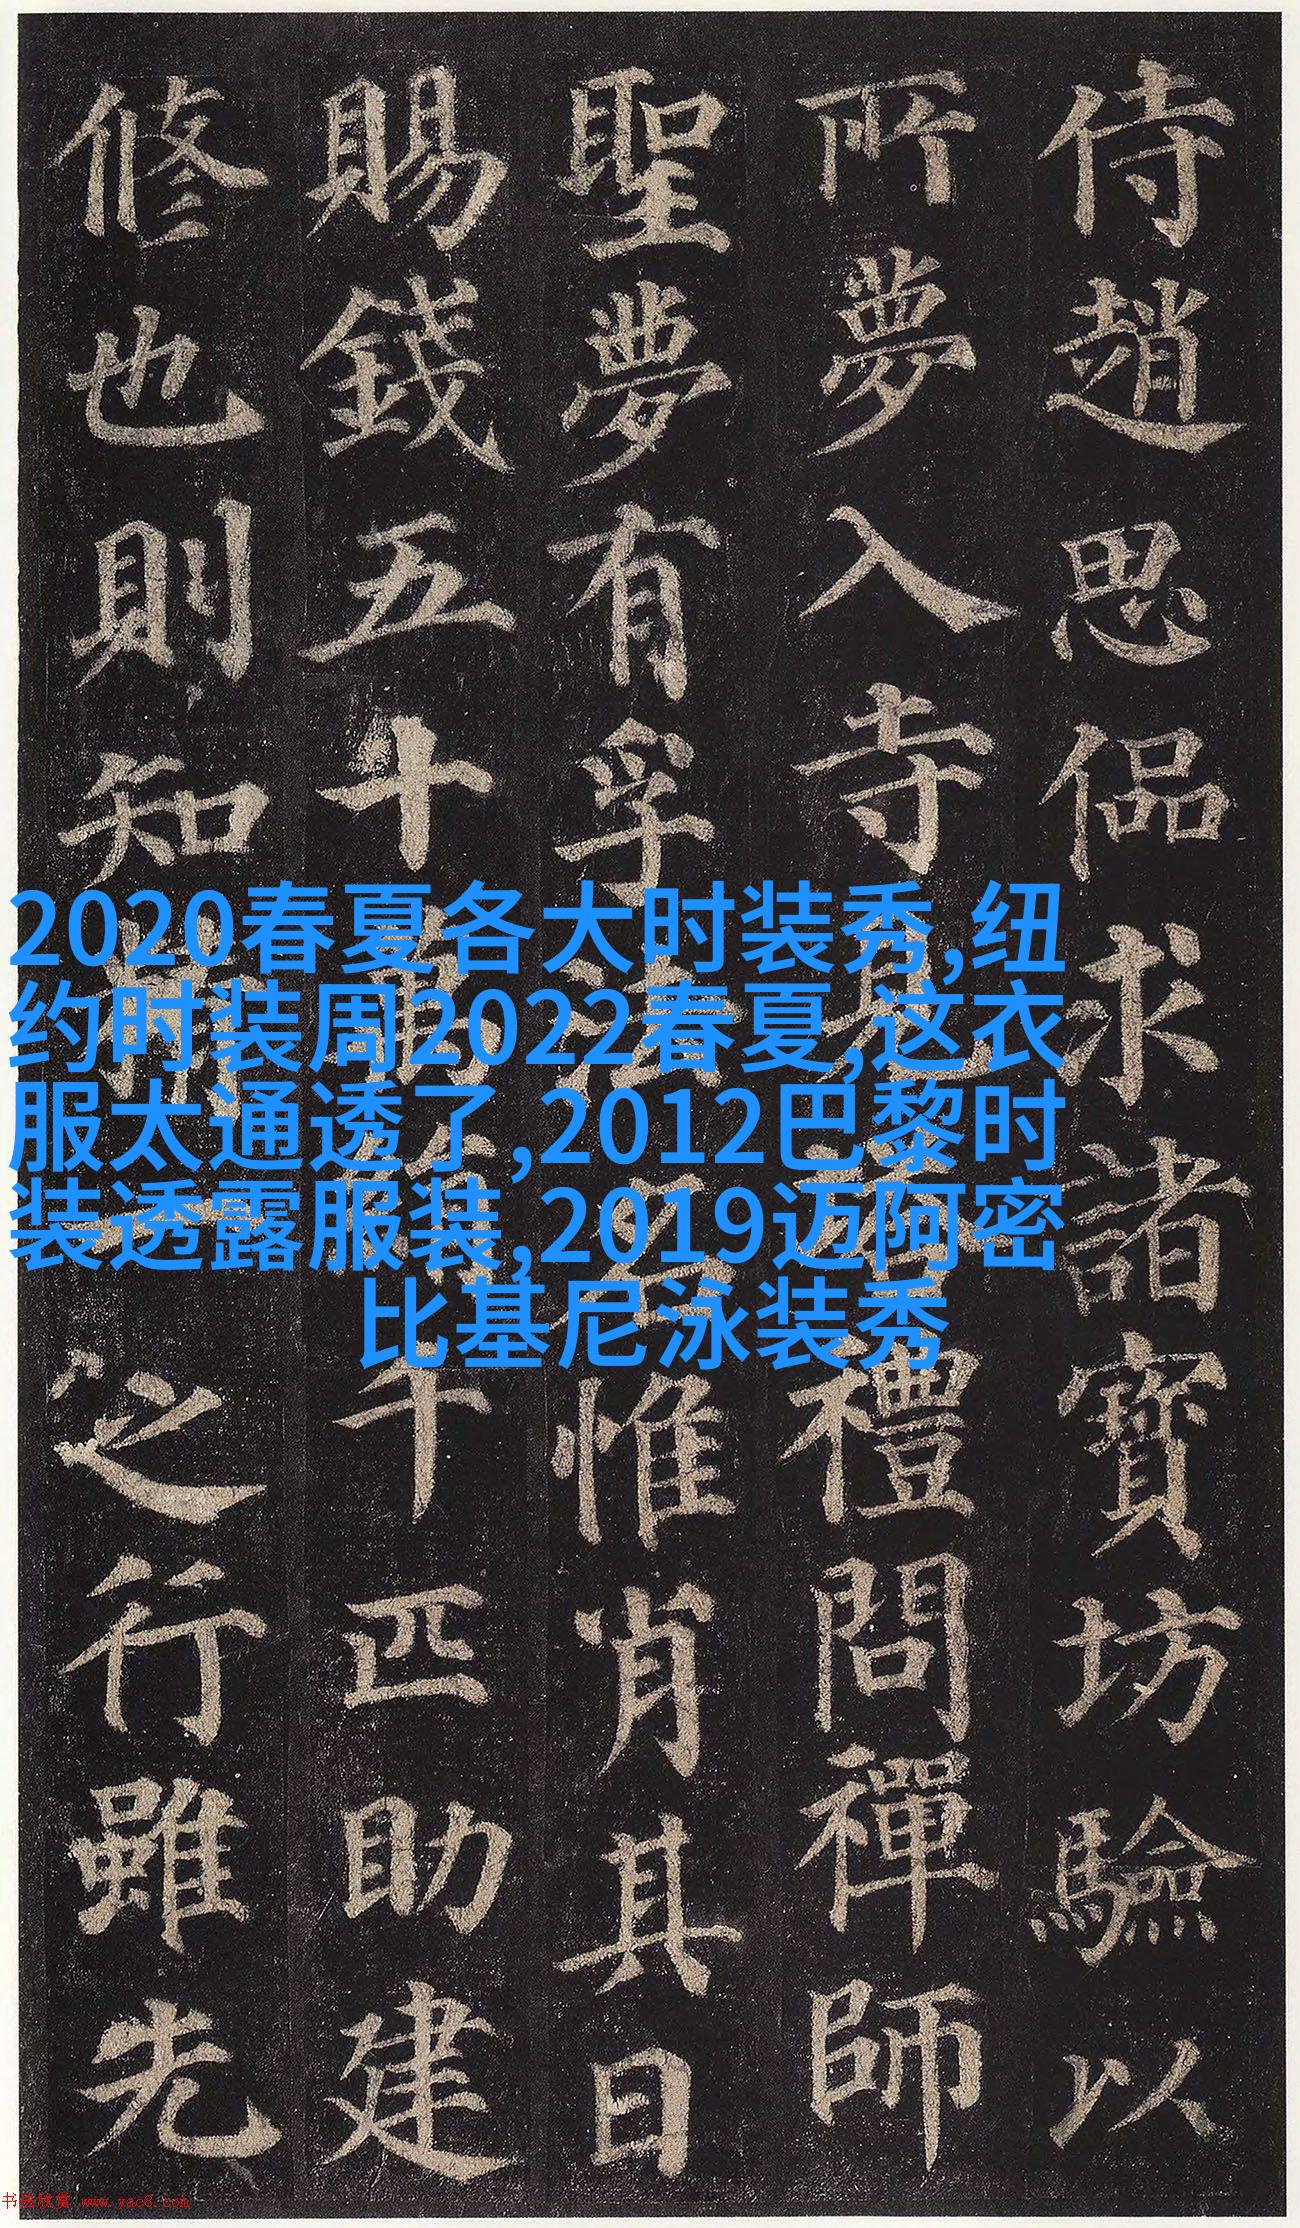 侍趙思偘求諸寶坊驗以
所夢入寺禮問禪師
聖夢有孚法名惟肖其日
賜錢五十萬千匹助建
修也則知之行雖先
2020春夏各大时装秀,纽
约时装周2022春夏,这衣
服太通透了,2012巴黎时
装透露服装,2019迈阿密
比基尼泳装秀
书法欣赏 www.yac8.com